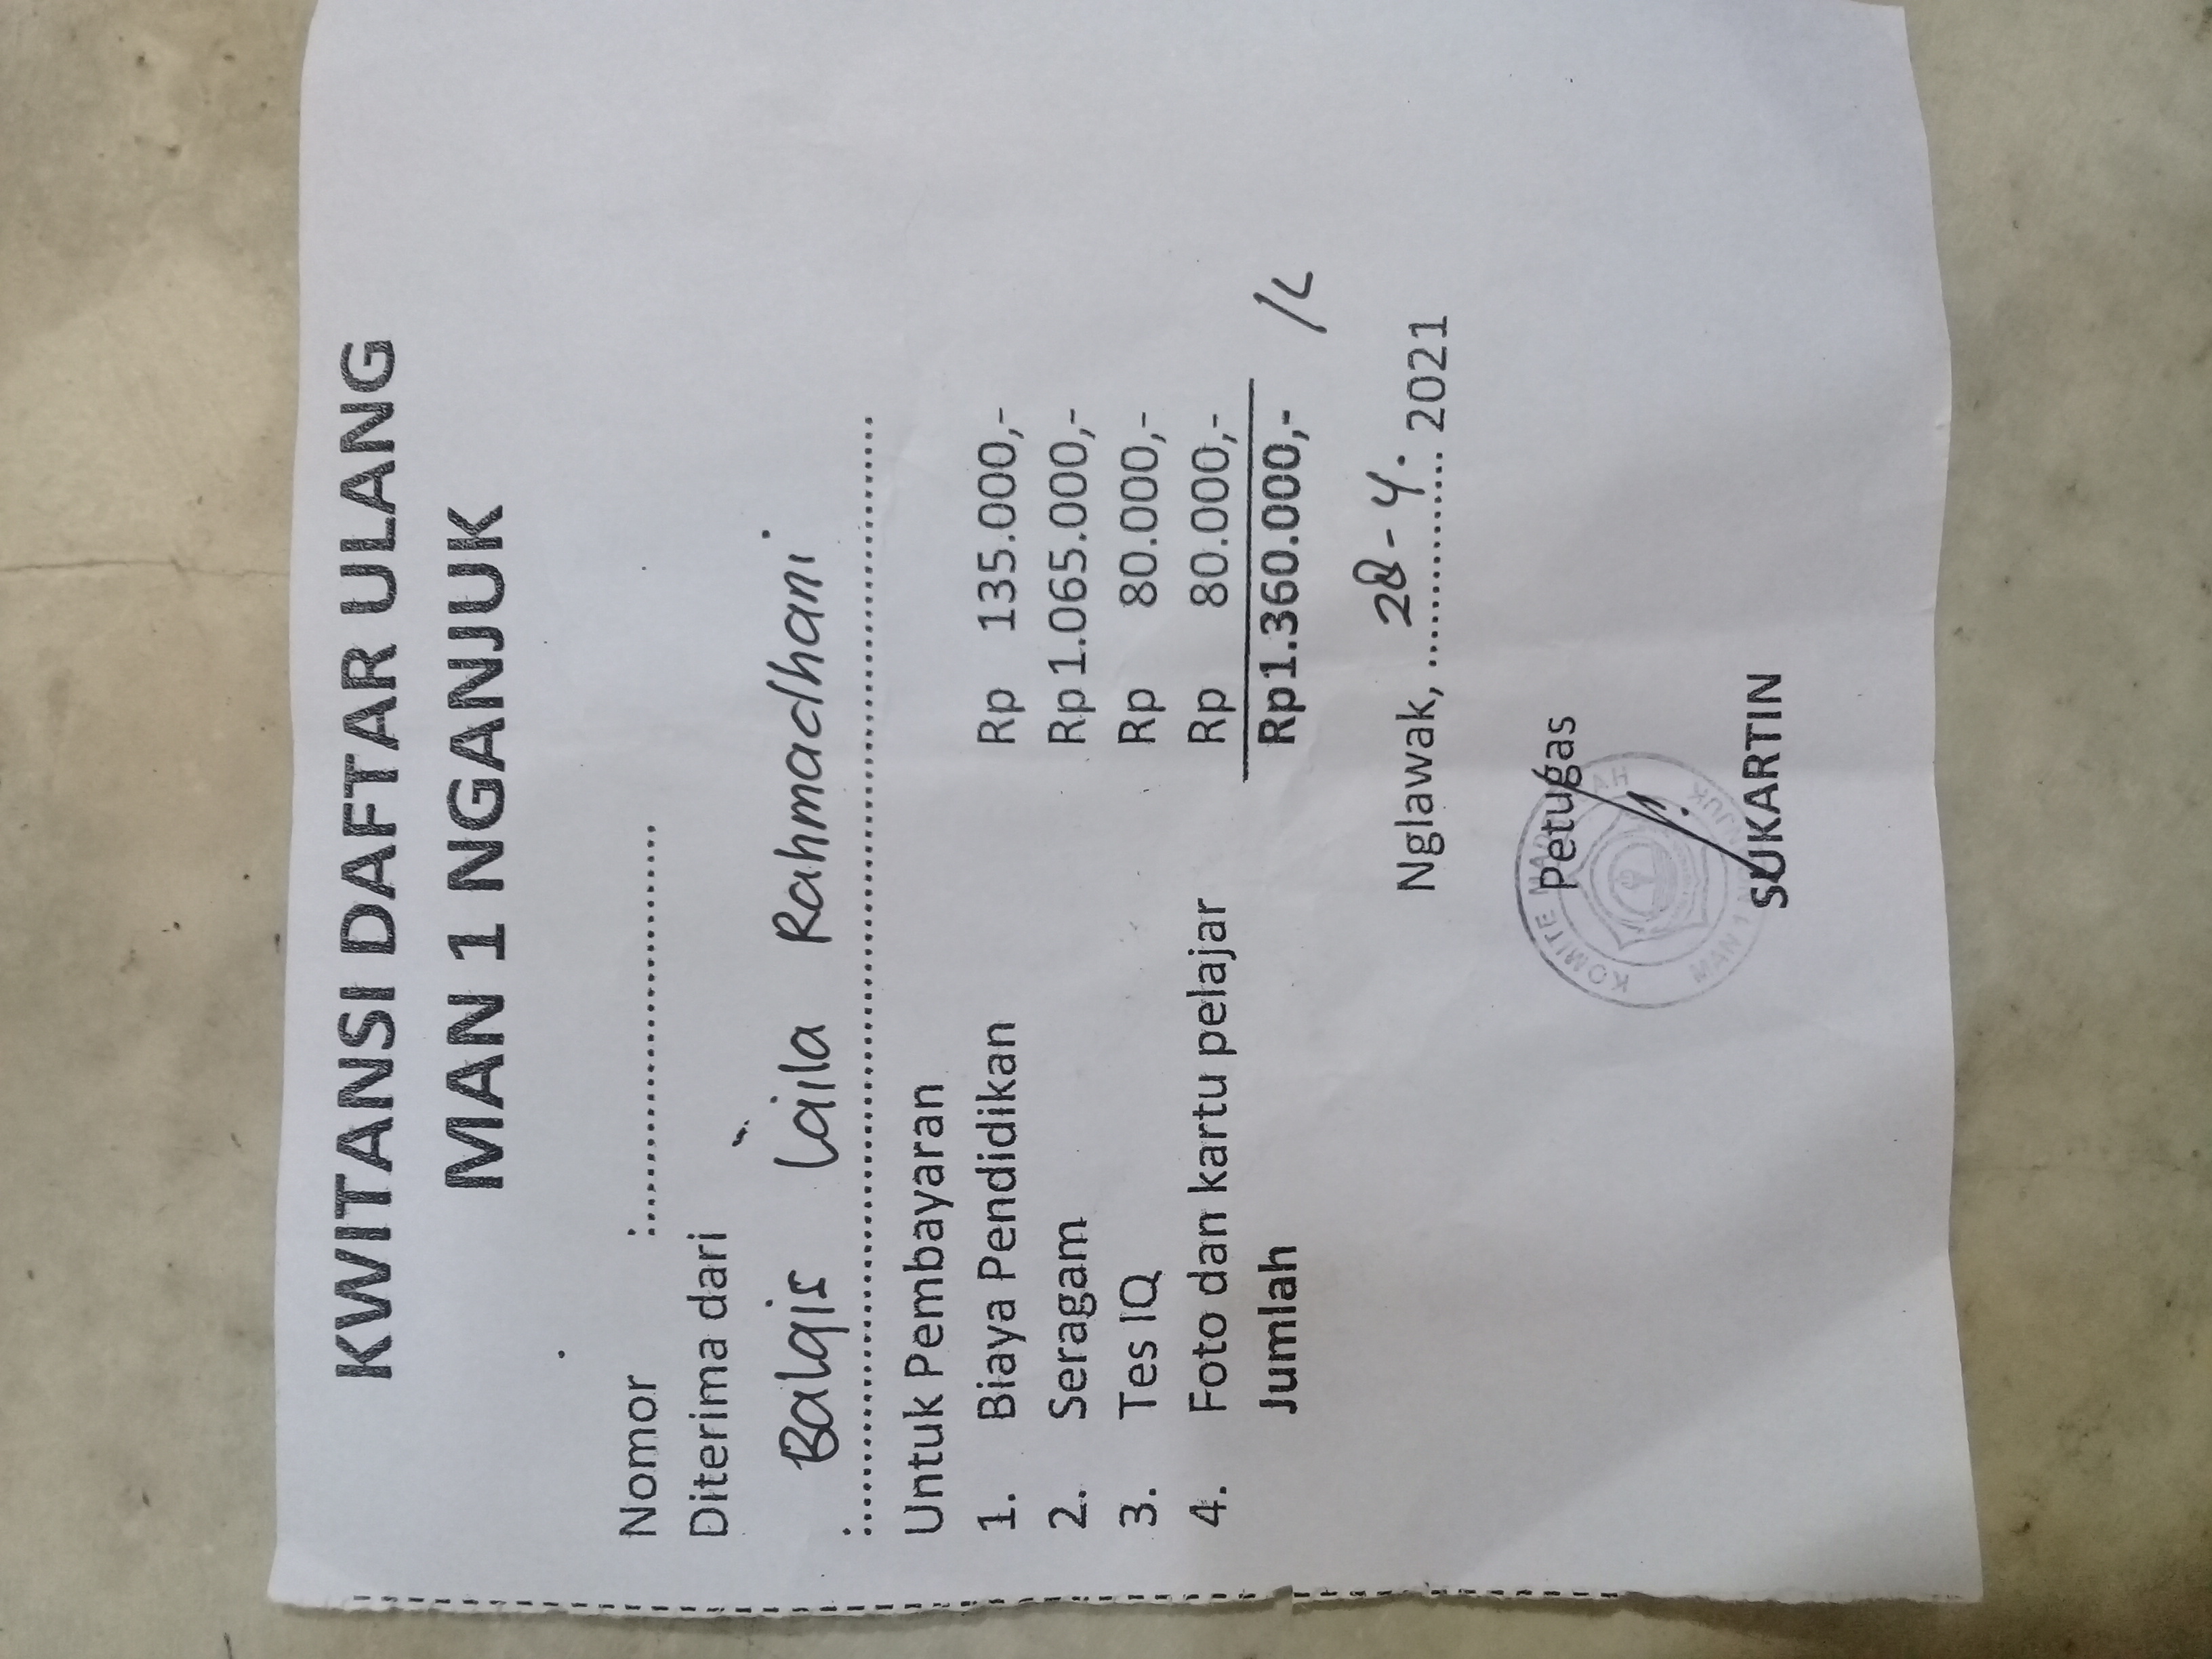 KWITANSI DAFTAR ULANG
MAN 1 NGANJUK
Nomor :............................
Diterima dari
Balqis Laila Rahmadhani
Untuk Pembayaran
1. Biaya Pendidikan Rp 135.000,-
2. Seragam Rp 1.065.000,-
3. Tes IQ Rp 80.000,-
4. Foto dan kartu pelajar Rp 80.000,-
Jumlah Rp1.360.000,-
Nglawak, 28-4. 2021
Petugas
KOMITE MADRASAH
MAN 1 NGANJUK
SUKARTIN